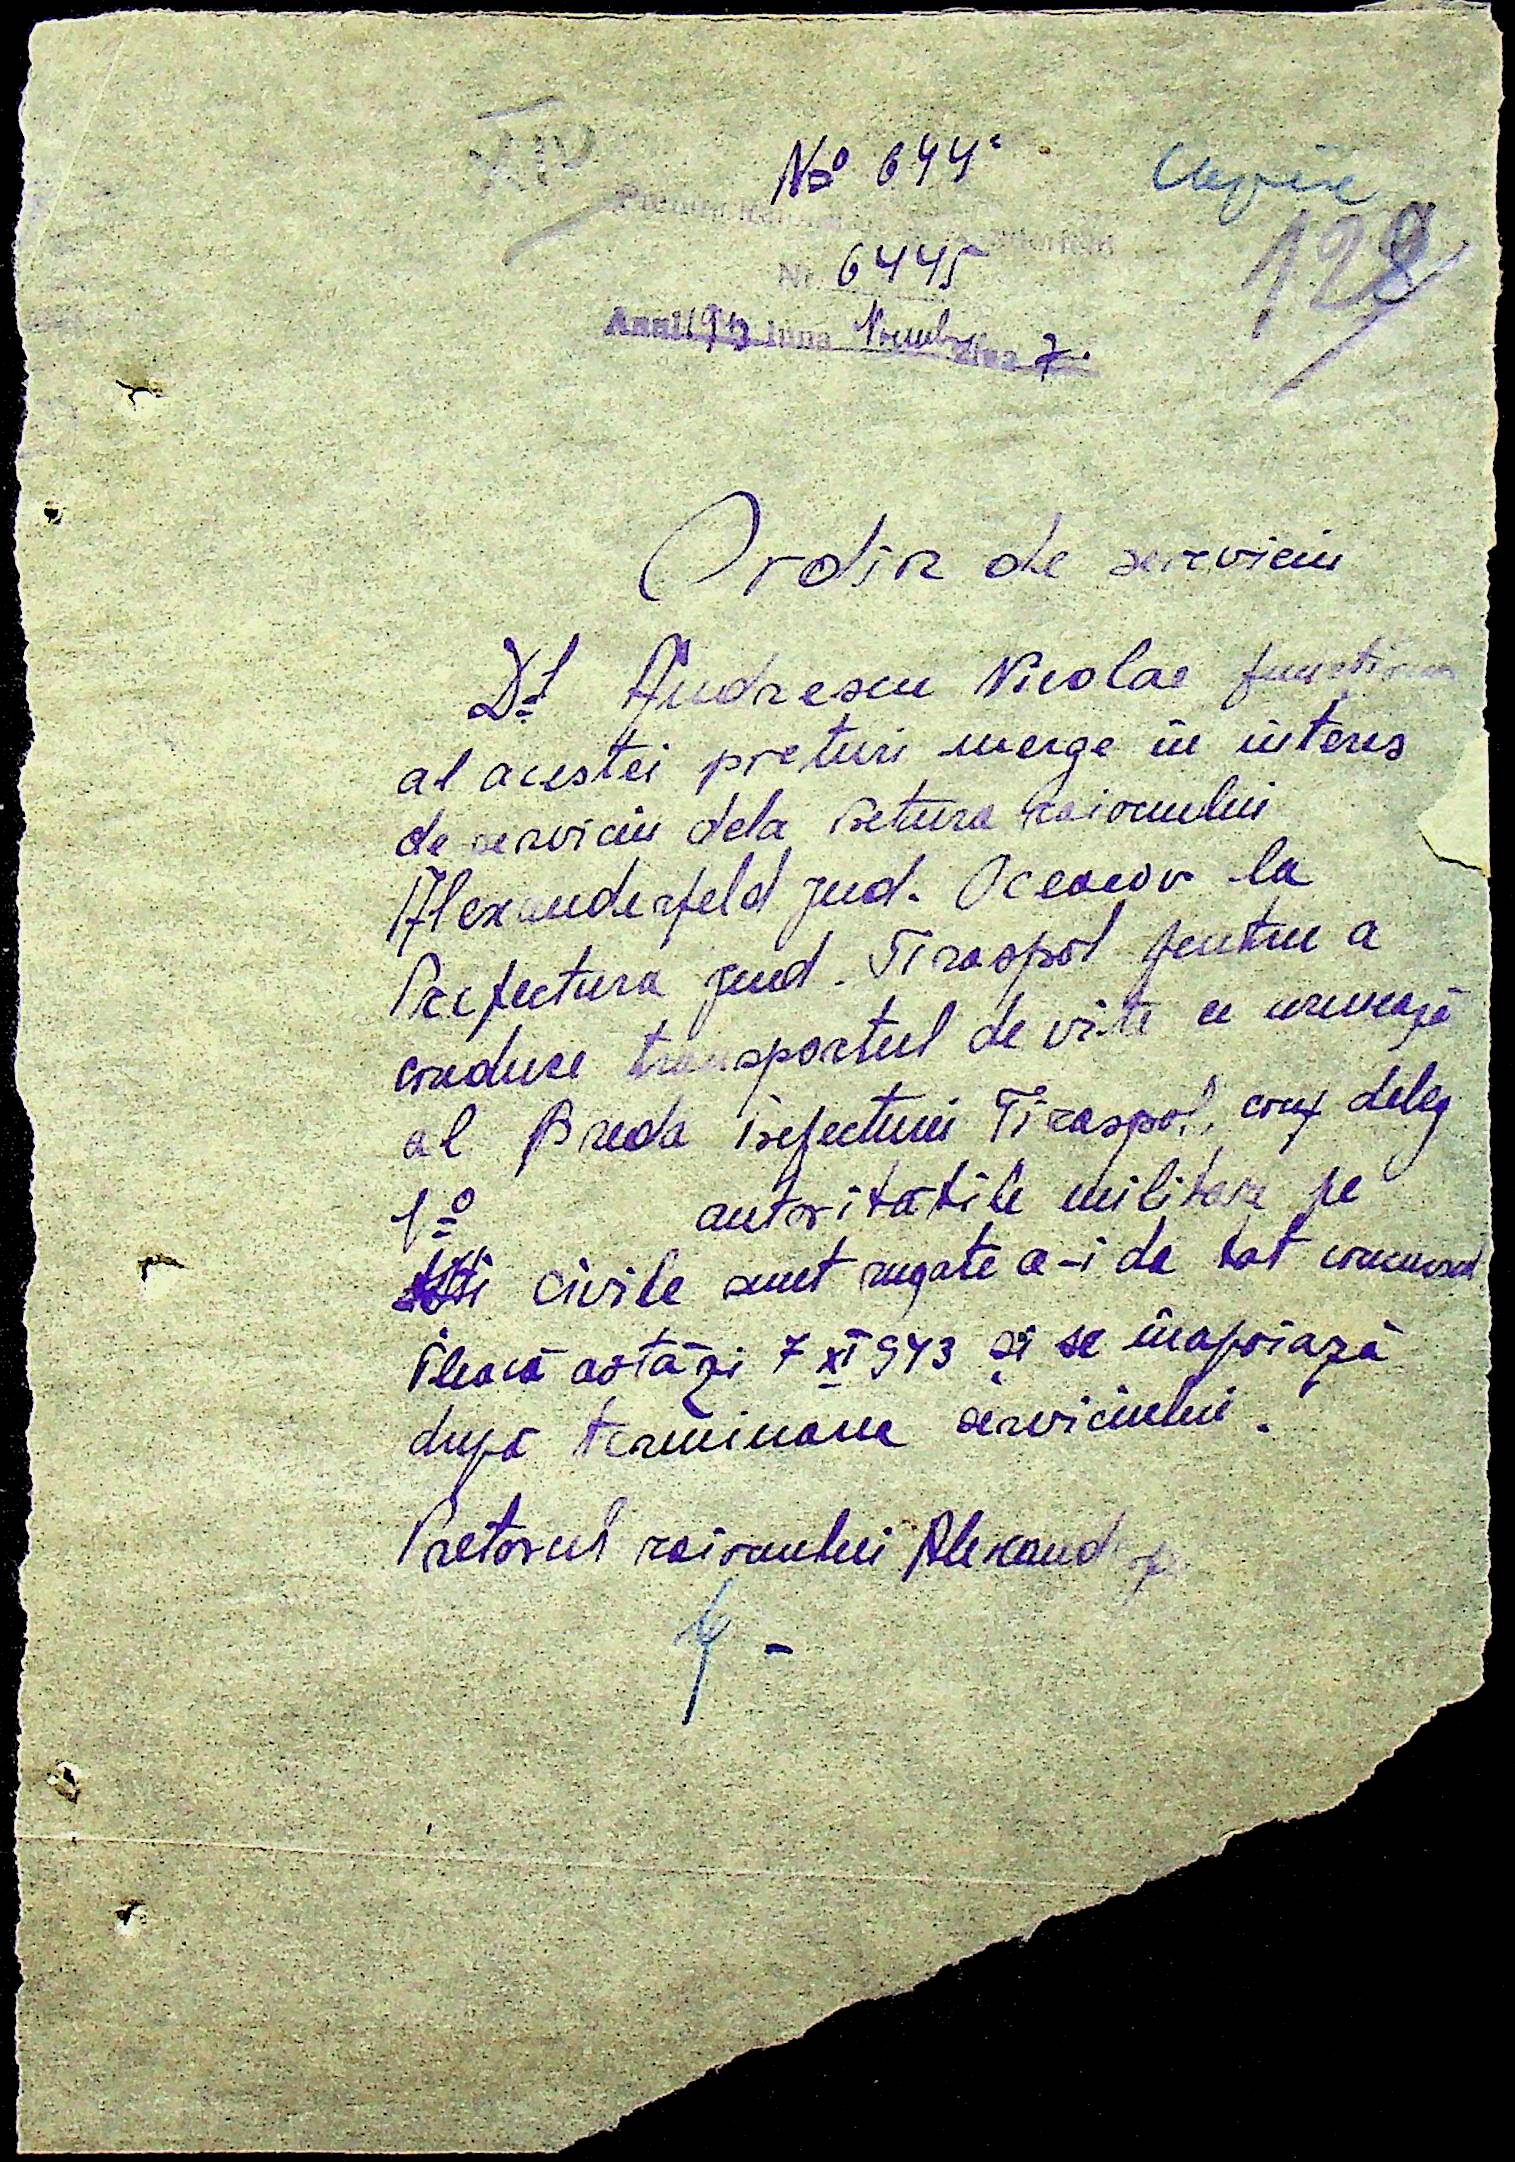 XIV
No 644
128
Nr. 6445
Anul 1943 luna Noembr ziua 7
Ordin de serviciu
Dl Andrescu Nicolae
al acestei preturi merge în interes
de serviciu dela Pretura raionului
Alexanderfeld jud. Oceacov la
Prefectura jud. Tiraspol pentru a
conduce transportul de vite ce urmează
al Preda Prefecturii Tiraspol, conf deleg
autoritătile militare pe
civile sunt rugate a-i da tot concursul
Pleacă astăzi 7 XI 943 și se înapoiază
după terminarea serviciului.
Pretorul raionului Alexand